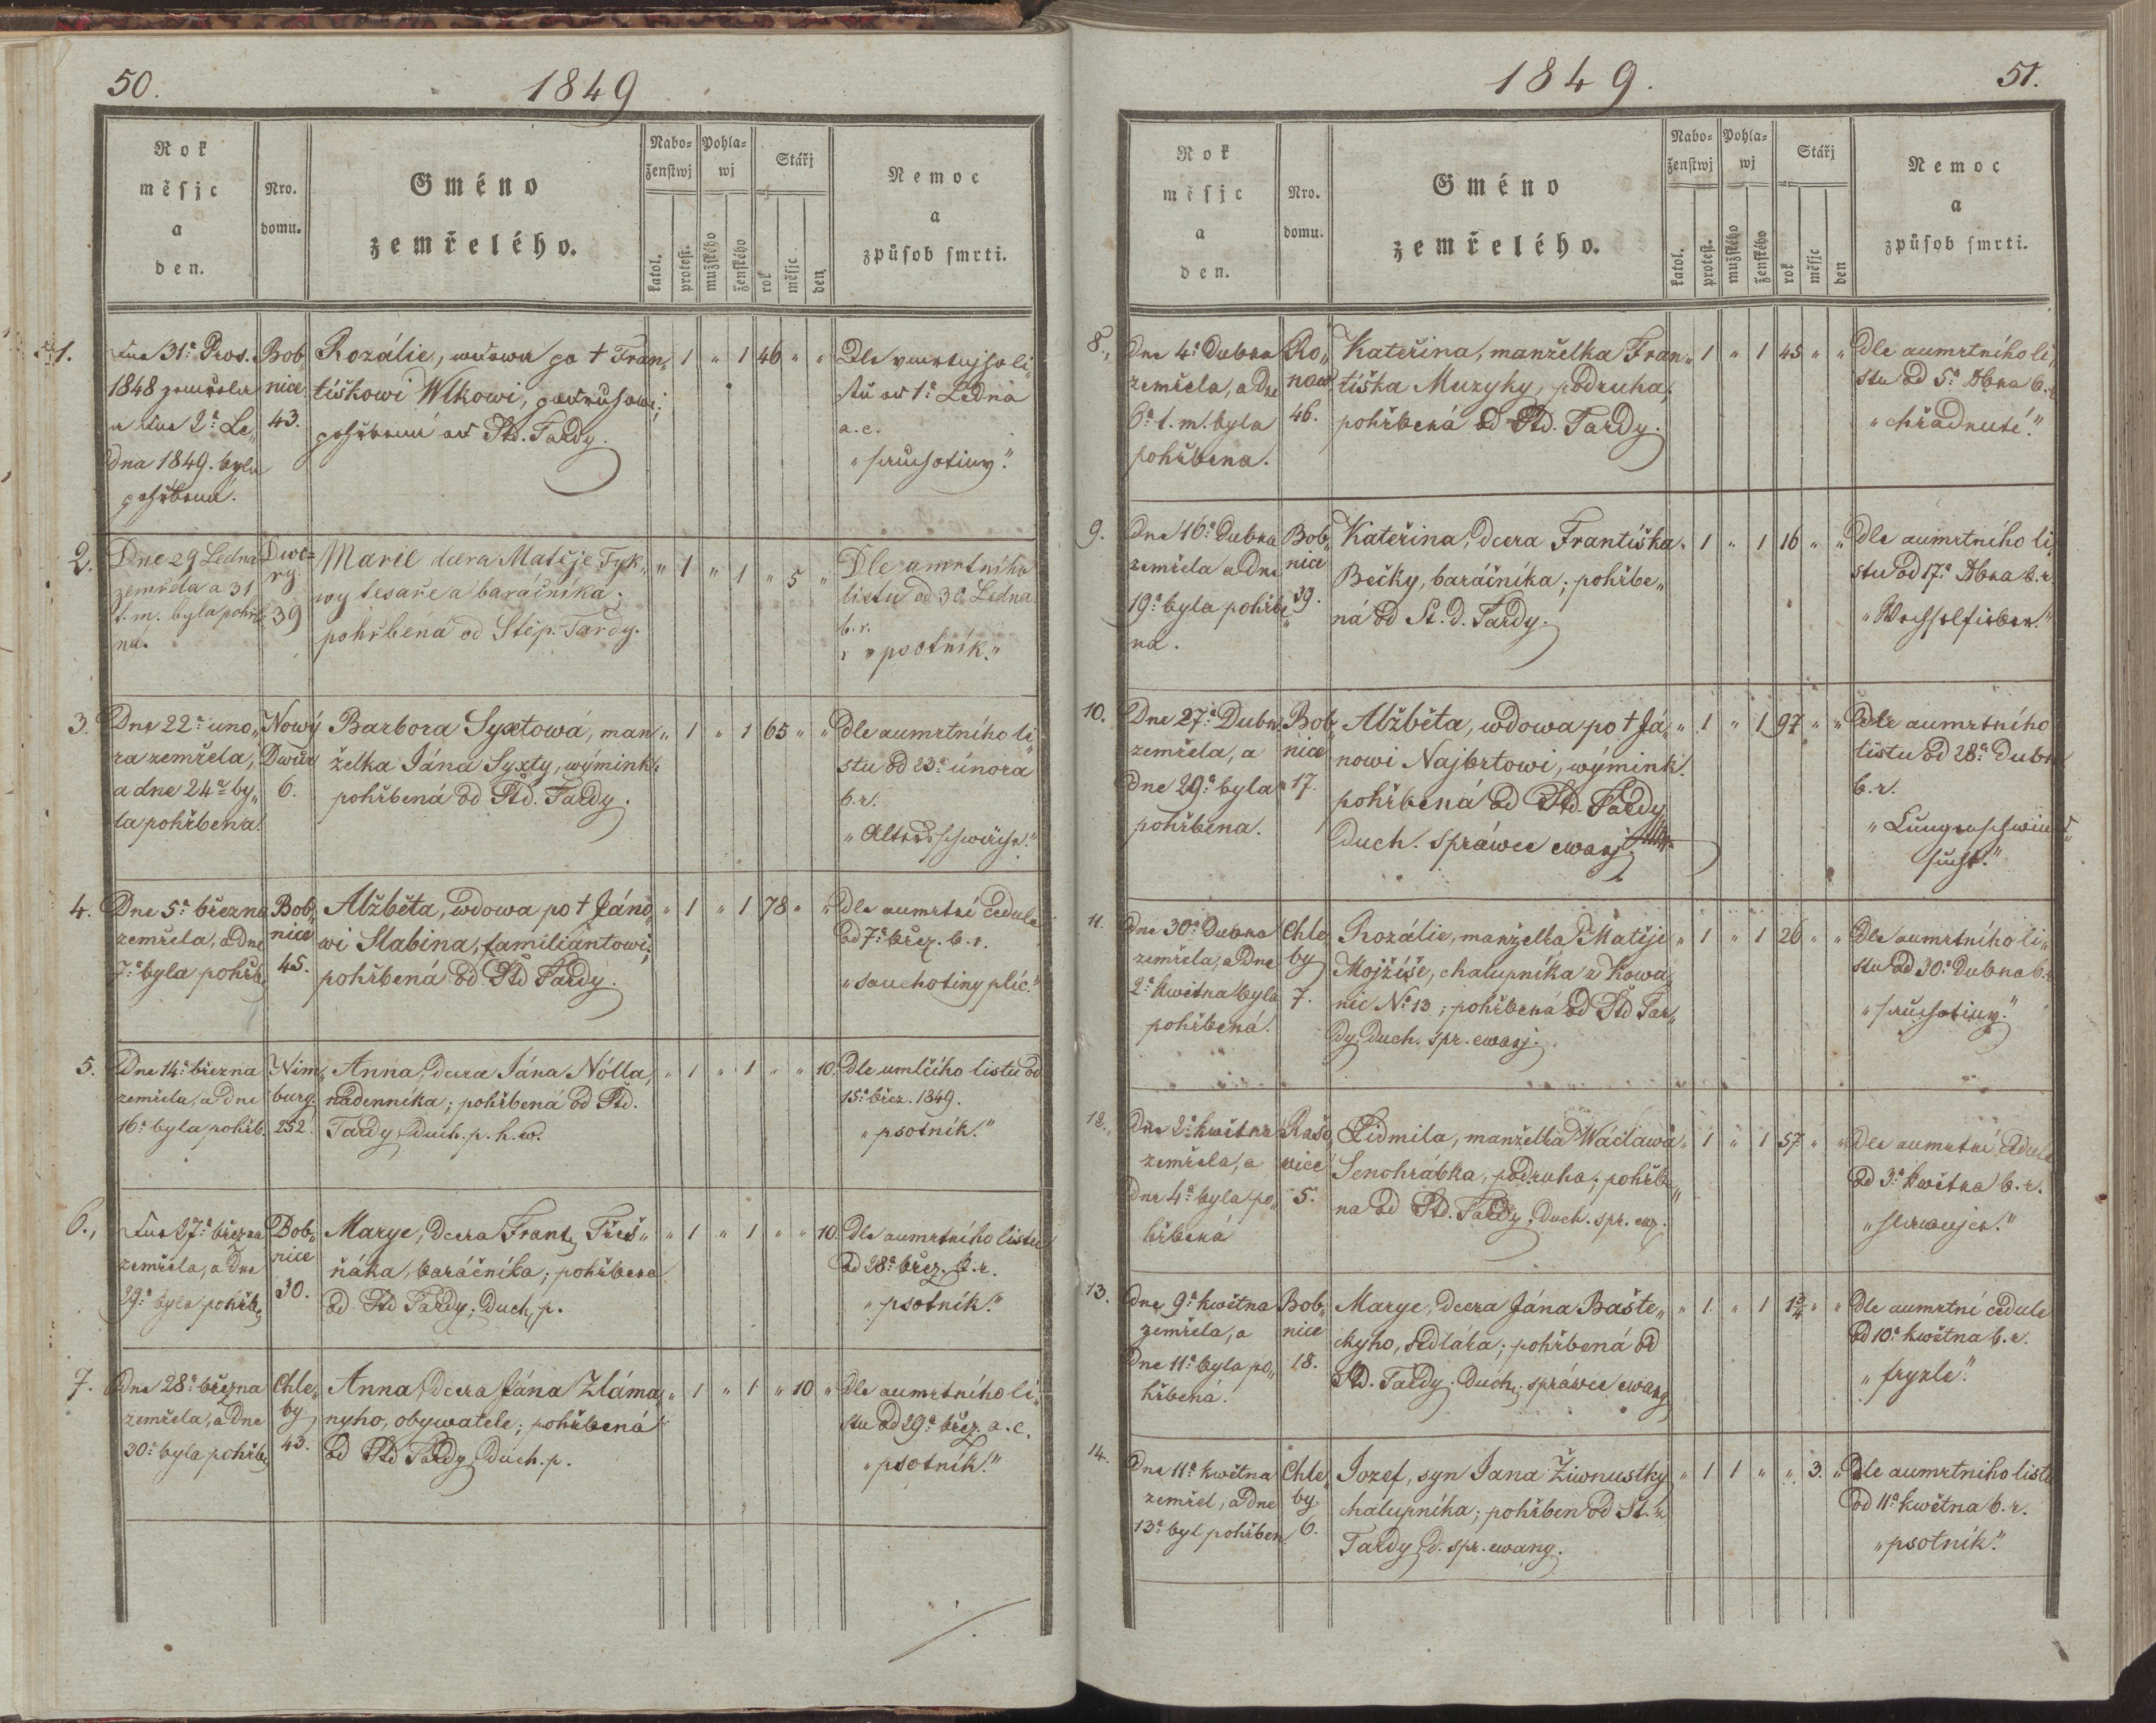 50.
1849
Rok
měsjc
a
den.
Nro.
domu.
Gméno
zemřelého.
Nabo-
ženstwj
katol.
protest.
Pohla-
wj
mužského
ženského
Stářj
rok
měsjc
den
Nemoc
a
způsob smrti.
1.
Dne 31ª Pros.
1848 zemřela
a dne 2ª Le„
dna 1849. byla
pohřbená.
Bob„
nice
43.
Rozálie, wdowa po † Fran„
tiškowi Wlkowi, podruhowi;
pohřbená od Štd. Tardy.
1 " 1 46 " "
Dle
stu od 1ª Ledna
a. c.
„souchotiny."
2.
Dne 29 Ledna
zemřela a 31
t. m. byla pohřbe
ná.
Dwo=
ry.
39
Marie dcera Matěje Tyk„
wy tesaře a baráčníka;
pohřbená od Štěp. Tardy.
" 1 " 1 " 5 "
Dle aumrtního
listu od 30 Ledna
b. r.
„psotník."
3.
Dne 22ª úno„
ra zemřela,
a dne 24ª by„
la pohřbena.
Nowý
Dwůr
6.
Barbora Syxtowá, man„
želka Jána Syxty, wýmink.
pohřbená od Štd. Tardy.
" 1 " 1 65 " "
Dle aumrtního li„
stu od 23ª února
b. r.
„Altersschwäche."
4.
Dne 5ª března
zemřela, a dne
7ª byla pohřb.
Bob„
nice
45.
Alžběta, wdowa po † Jáno„
wi Slabina, familiantowi;
pohřbená od Štd Tardy.
" 1 " 1 78 " "
Dle aumrtní cedule
od 7ª břez. b. r.
„souchotiny plic."
5.
Dne 14ª března
zemřela, a dne
16ª byla pohřb.
Nim„
burg.
252.
Anna, dcera Jána Nólla,
nadenníka; pohřbená od Štd.
Tardy, duch. p. h. w.
" 1 " 1 " " 10.
Dle umlčího listu od
15ª břez. 1849.
„psotník."
6.,
Dne 27ª března
zemřela, a dne
29ª byla pohřb.
Bob„
nice
30.
Marye, dcera Frant. Třeš„
ňáka, baráčníka; pohřbena
od Štd Tardy, duch. p.
" 1 " 1 " " 10.
Dle aumrtního listu
od 28ª břez. b. r.
„psotník."
7.
Dne 28ª března
zemřela, a dne
30ª byla pohřb.
Chle„
by
43.
Anna, dcera Jána Zláma„
nyho, obywatele; pohřbená
od Štd Tardy, Duch. p.
" 1 " 1 " 10 "
Dle aumrtního li„
stu od 29ª břez. a. c.
„psotník."
1849.
51.
Rok
měsjc
a
den.
Nro.
domu.
Gméno
zemřelého.
Nabo-
ženstwj
katol.
protest.
Pohla-
wj
mužského
ženského
Stářj
rok
měsjc
den
Nemoc
a
způsob smrti.
8.,
Dne 4ª Dubna
zemřela, a dne
6ª t. m. byla
pohřbena.
Ro„
now
46.
Kateřina, manželka Fran„
tiška Muzyky, podruha;
pohřbená od Štd. Tardy.
" 1 " 1 45 " "
Dle aumrtního li„
stu od 5ª Dbna b. r.
„chřadnutí."
9.
Dne 16ª Dubna
zemřela a dne
19ª byla pohřbe„
na.
Bob„
nice
39.
Kateřina, dcera Františka
Bečky, baráčníka; pohřbe„
ná od Št. d. Tardy.
" 1 " 1 16 " "
Dle aumrtního li„
stu od 17ª Dbna b. r.
„Wechselfieber."
10.
Dne 27ª Dubn.
zemřela, a
dne 29ª byla
pohřbena.
Bob„
nice
17.
Alžběta, wdowa po † Já„
nowi Najbrtowi, wýmink.
pohřbená od Štd. Tardy
Duch. spráwce ewanj.
" 1 " 1 97 " "
Dle aumrtního
listu od 28ª Dubna
b. r.
„Lungenschwind„
sucht."
11.
Dne 30ª Dubna
zemřela, a dne
2ª kwětna byla
pohřbená.
Chle„
by
7.
Rozálie, manželka Matěje
Mojžíše, chalupníka z Kowa„
nic Nº 13; pohřbená od Štd Tar„
dy, Duch. spr. ewanj.
" 1 " 1 26 " "
Dle aumrtního li„
stu od 30ª Dubna b. r.
„souchotiny."
12.,
Dne 2ª kwětna
zemřela, a
dne 4ª byla po„
hřbená
Rašo„
wice
5.
Lidmila, manželka Wáclawa
Senohrábka, podruha; pohřbe„
na od Štd. Tardy, Duch. spr. ew.
" 1 " 1 57 " "
Dle aumrtní cedule
od 3ª kwětna b. r.
13.
Dne 9ª kwětna
zemřela, a
dne 11ª byla po„
hřbená.
Bob„
nice
18.
Marye, dcera Jána Bašte„
ckyho, sedláka; pohřbená od
Štd. Tardy. Duch. spráwce ewang.
" 1 " 1 1¾ " "
Dle aumrtní cedule
od 10ª kwětna b. r.
„fryzle."
14.
Dne 11ª kwětna
zemřel, a dne
13ª byl pohřben.
Chle„
by.
6.
Jozef, syn Jana Žiwnustky
chalupníka; pohřben od Št.
Tardy, d. spr. ewang.
" 1 1 " " 3. "
Dle aumrtniho listu
od 11ª kwětna b. r.
„psotník."